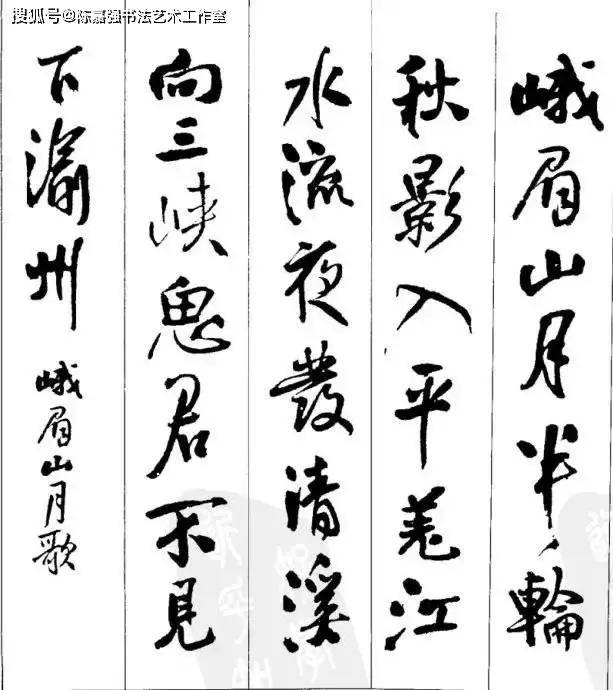 搜狐号@陈嘉强书法艺术工作室
峨眉山月半輪
秋影入平羌江
水流夜發清溪
向三峽思君不見
下渝州
峨眉山月歌